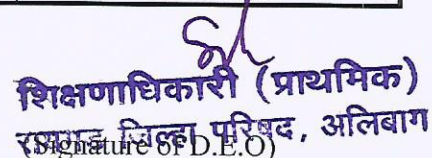 शिक्षणाधिकारी (प्राथमिक)
रायगड जिल्हा परिषद, अलिबाग
(Signature of D.E.O)